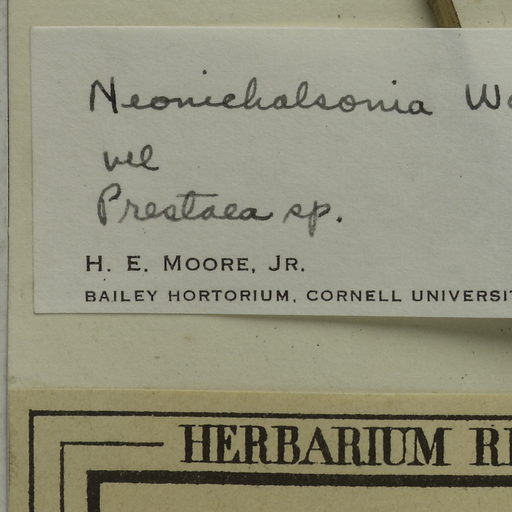 Neonicholsonia
vel
Prestoea sp.
H. E. MOORE, JR.
BAILEY HORTORIUM, CORNELL
HERBARIUM